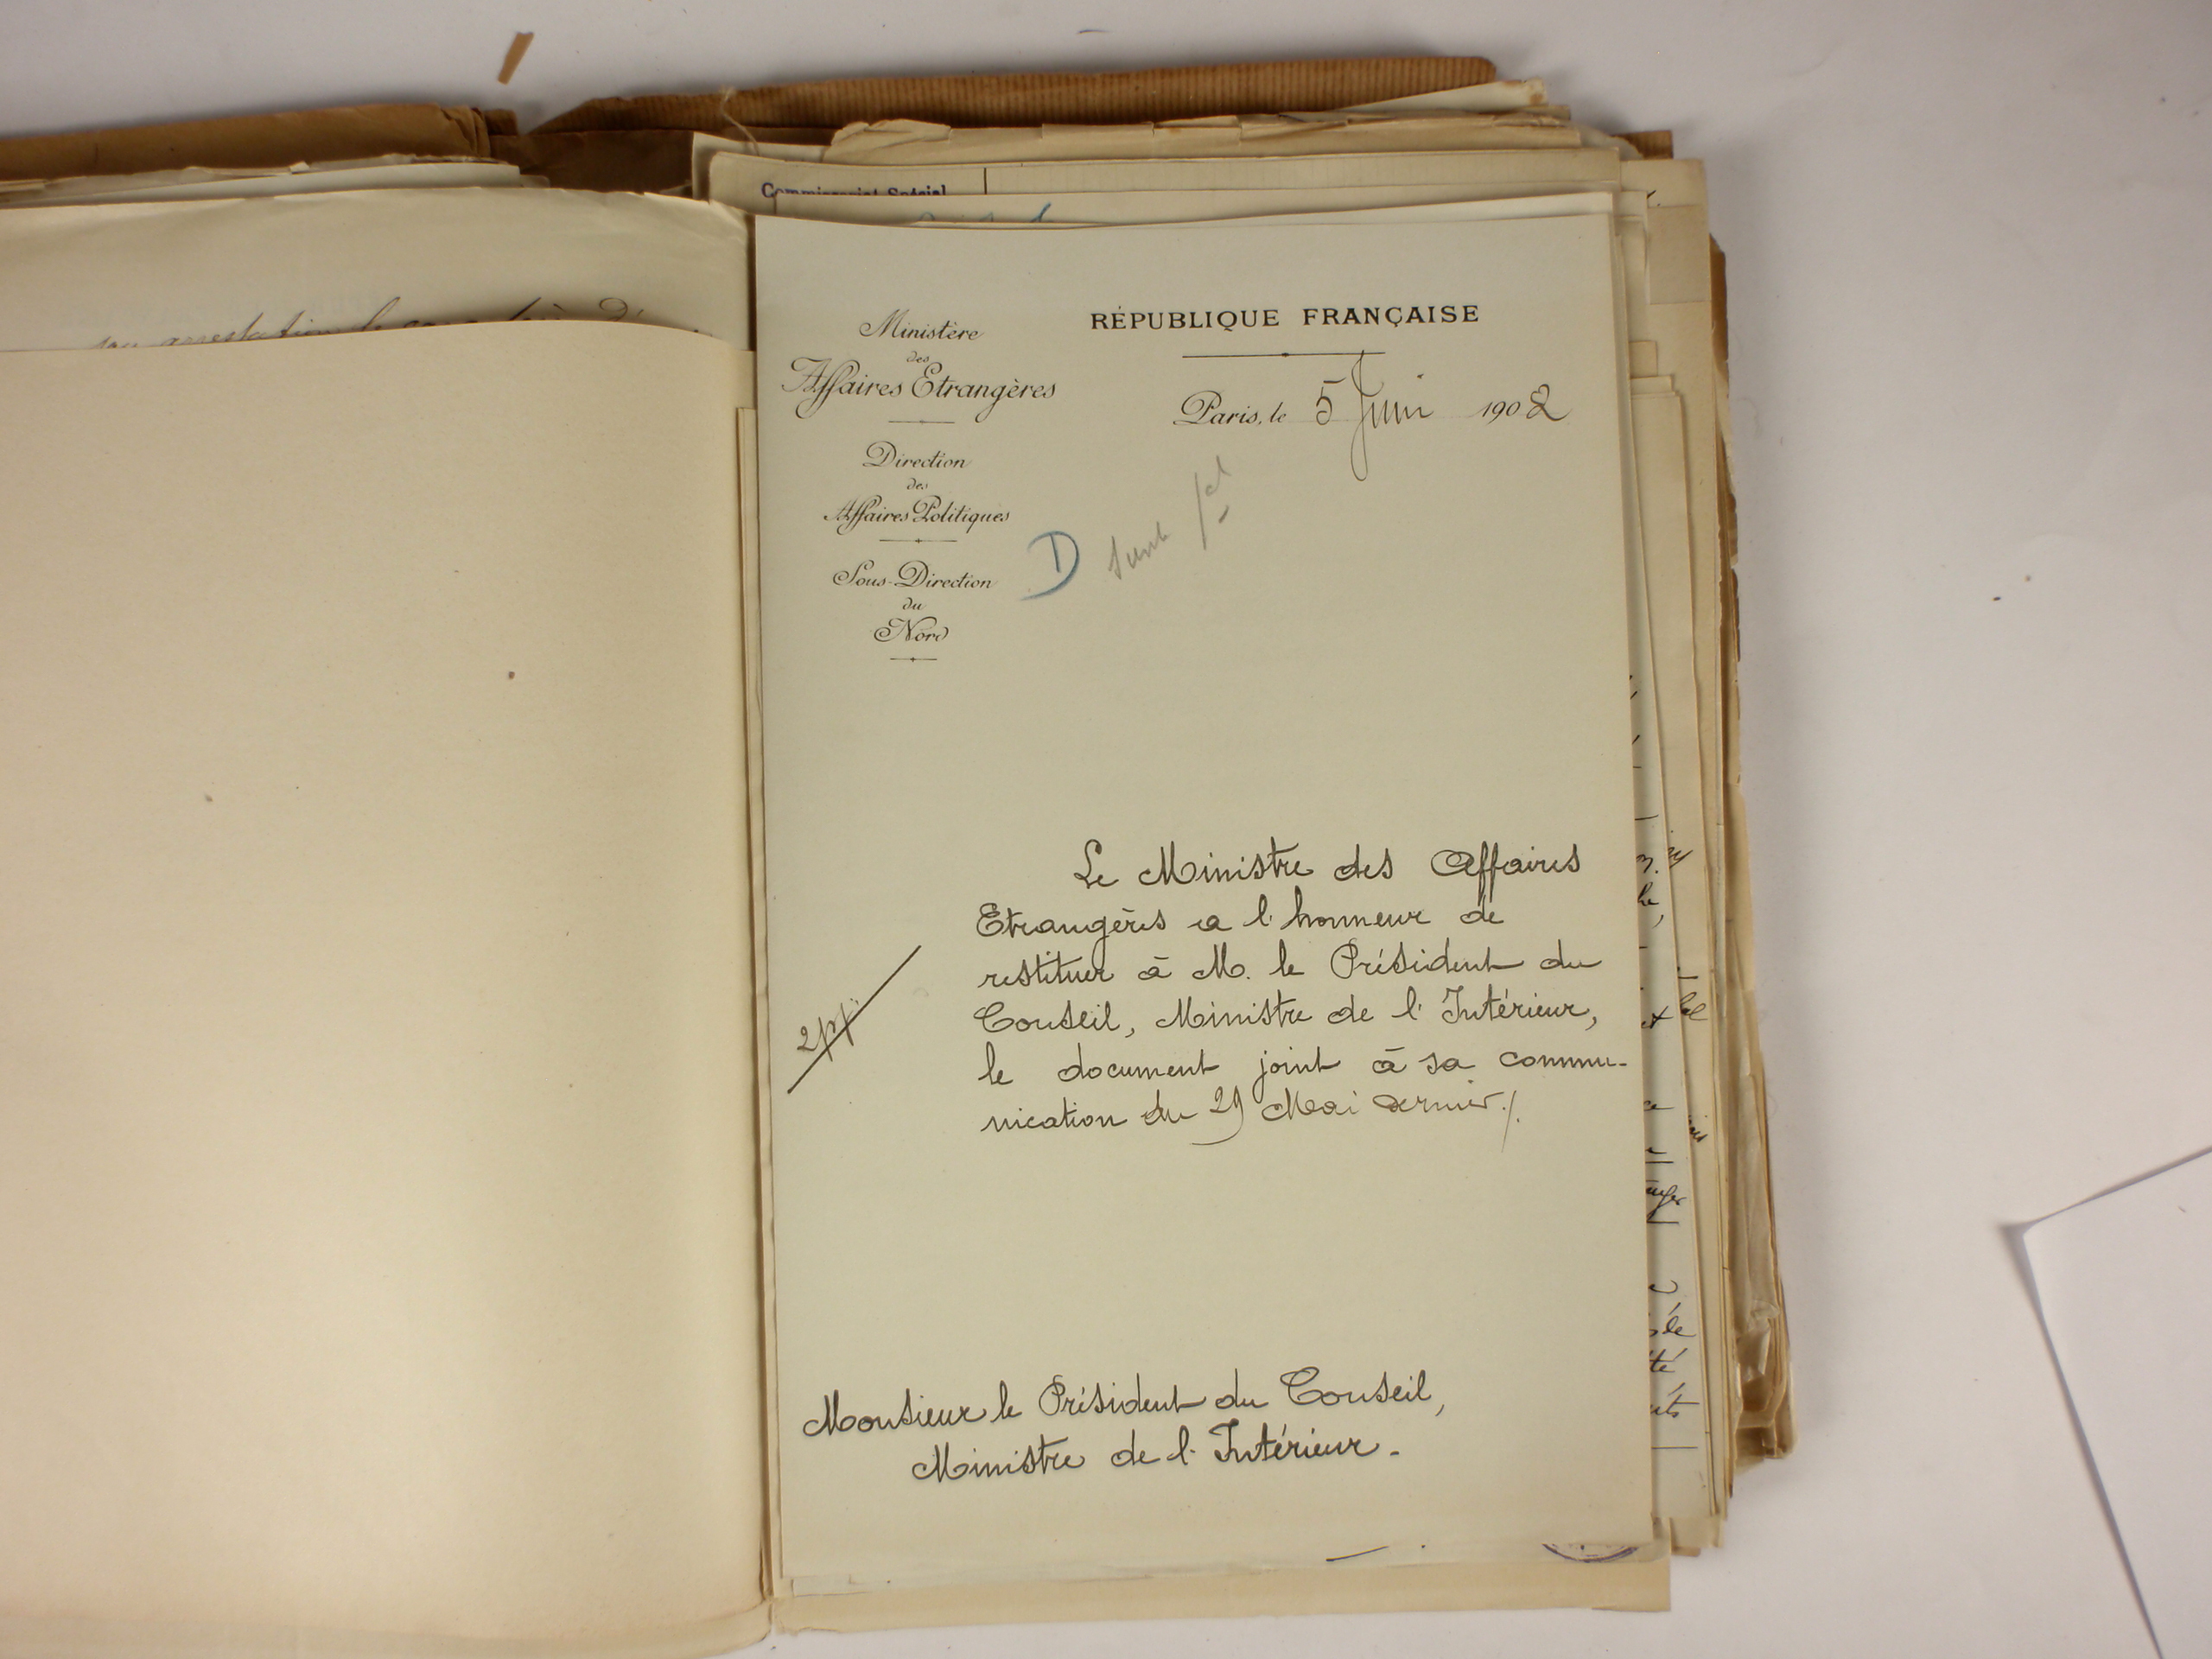 Commissariat Spécial
son arrestation le
Ministère
des
Affaires Etrangères
Direction
des
Affaires Politiques
Sous-Direction
du
Nord
RÉPUBLIQUE FRANÇAISE
Paris, le 5 Juin 1902
D
Le Ministre des Affaires
Etrangères a l'honneur de
restituer à M. le Président du
Conseil, Ministre de l'Intérieur,
le document joint à sa commu-
nication du 29 Mai dernier./.
Monsieur le Président du Conseil,
Ministre de l'Intérieur.